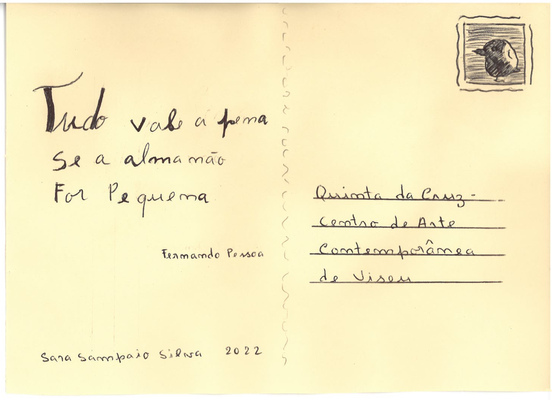 Tudo vale a pena
Se a alma não
For Pequena
Fernando Pessoa
Sara Sampaio Silva 2022
Quinta da Cruz -
Centro de Arte
Contemporânea
de Viseu